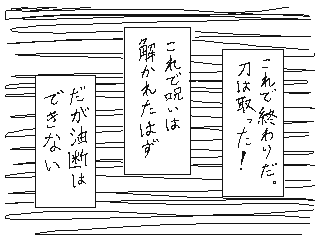 これで終わりだ。
刀は取った!
これで呪いは
解かれたはず
だが油断は
できない